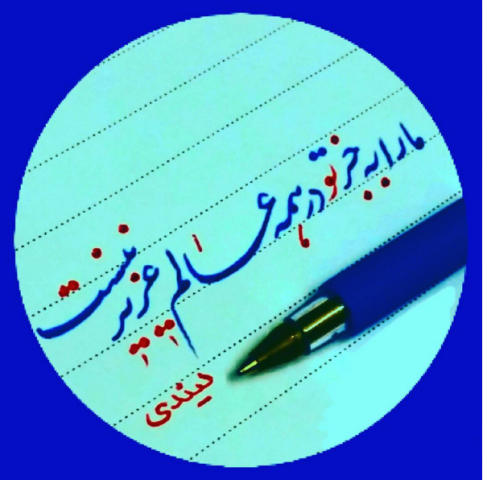 ما را به جز تو در همه عالم عزیز نیست